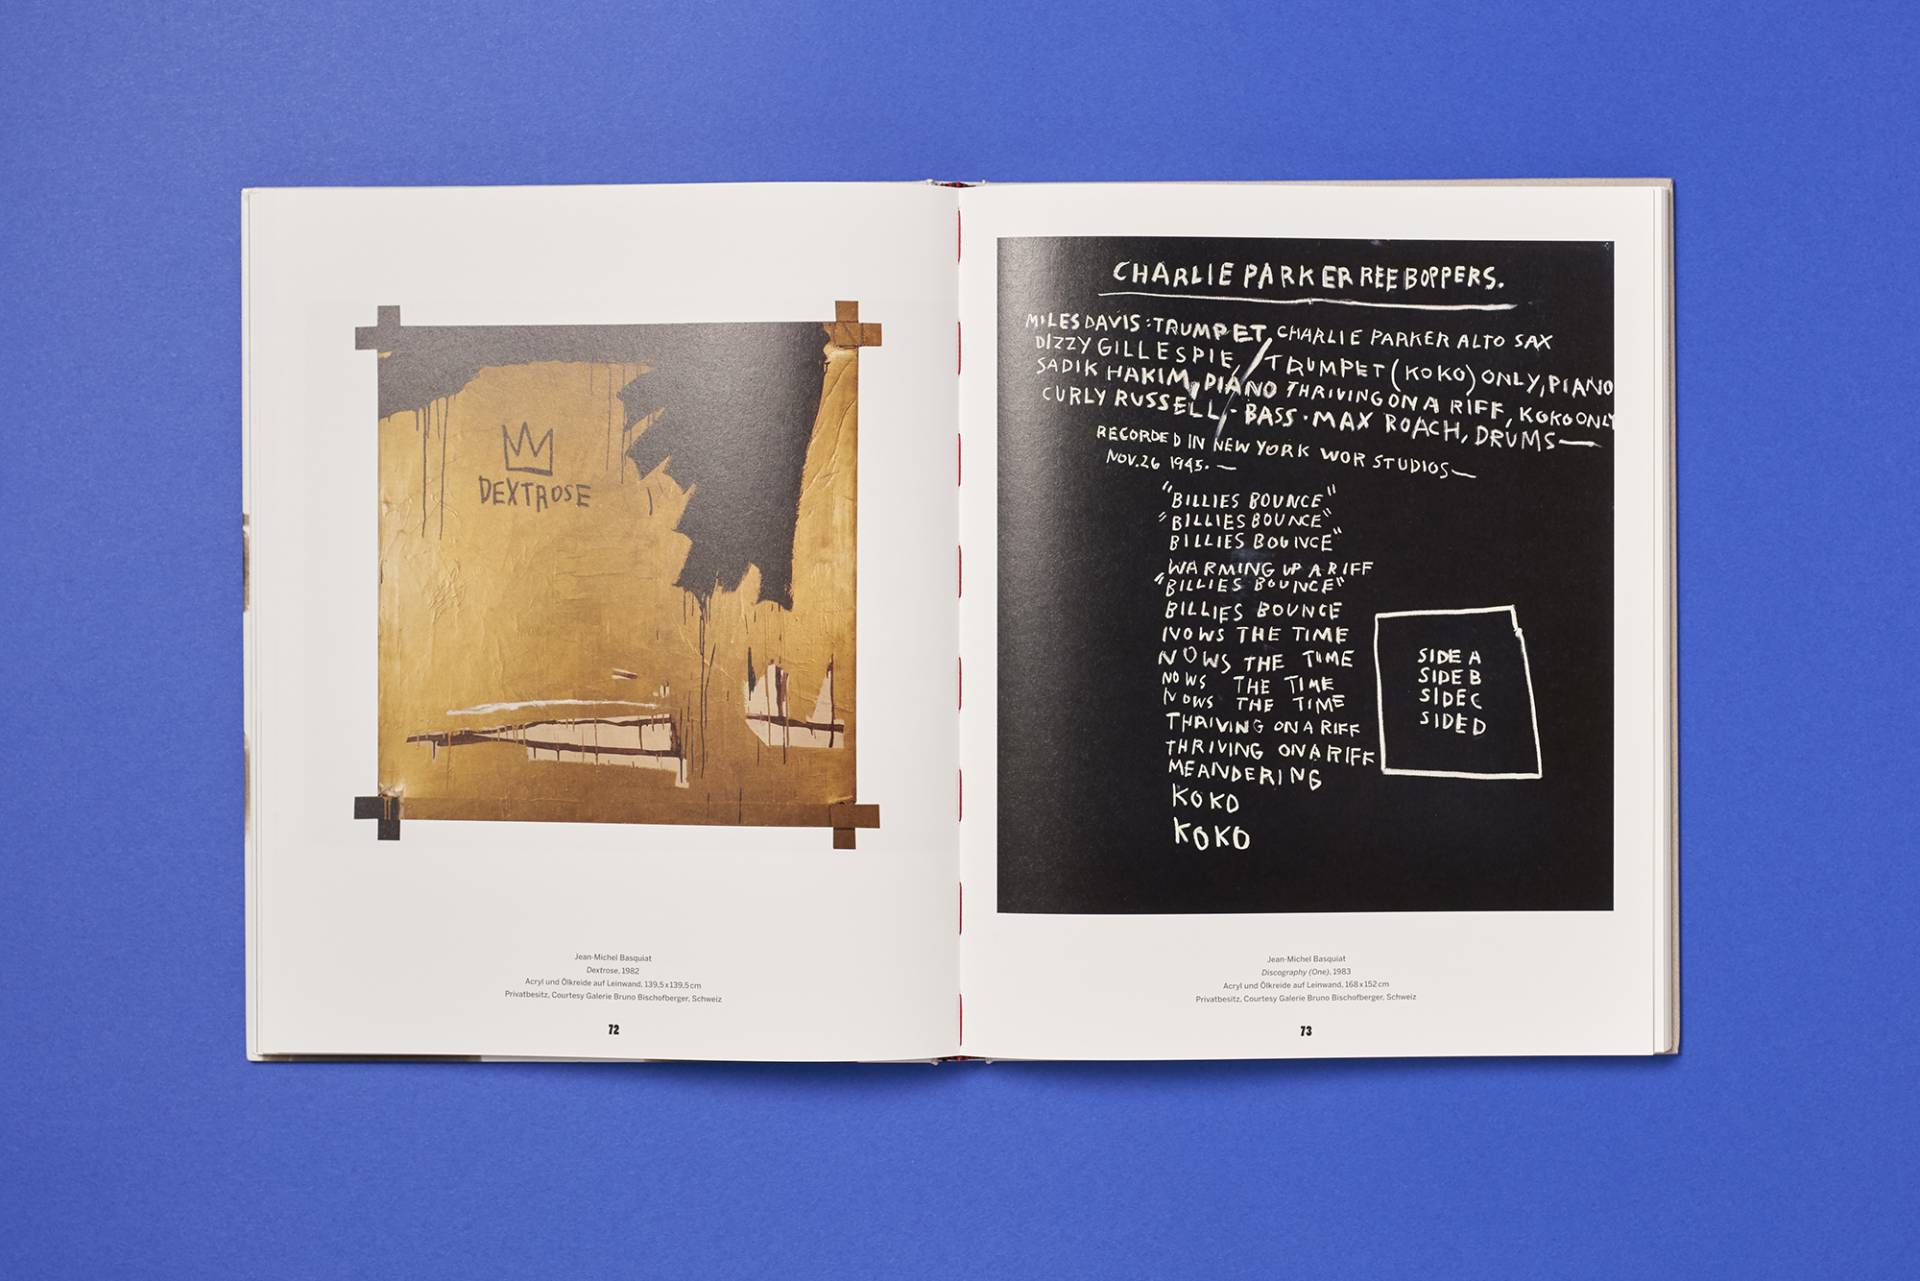 DEXTROSE
Jean-Michel Basquiat
Dextrose, 1982
Acryl und Ölkreide auf Leinwand, 139,5 x 139,5 cm
Privatbesitz, Courtesy Galerie Bruno Bischofberger, Schweiz
72
CHARLIE PARKER REE BOPPERS.
MILES DAVIS: TRUMPET, CHARLIE PARKER ALTO SAX
DIZZY GILLESPIE / TRUMPET (KOKO) ONLY, PIANO
SADIK HAKIM, PIANO THRIVING ON A RIFF, KOKO ONLY
CURLY RUSSELL, · BASS · MAX ROACH, DRUMS—
RECORDED IN NEW YORK WOR STUDIOS—
NOV. 26 1945. —
"BILLIES BOUNCE"
"BILLIES BOUNCE"
BILLIES BOUNCE"
WARMING UP A RIFF
"BILLIES BOUNCE"
BILLIES BOUNCE
NOWS THE TIME
NOWS THE TIME
NOWS THE TIME
NOWS THE TIME
THRIVING ON A RIFF
THRIVING ON A RIFF
MEANDERING
KOKO
KOKO
SIDE A
SIDE B
SIDE C
SIDE D
Jean-Michel Basquiat
Discography (One), 1983
Acryl und Ölkreide auf Leinwand, 168 x 152 cm
Privatbesitz, Courtesy Galerie Bruno Bischofberger, Schweiz
73